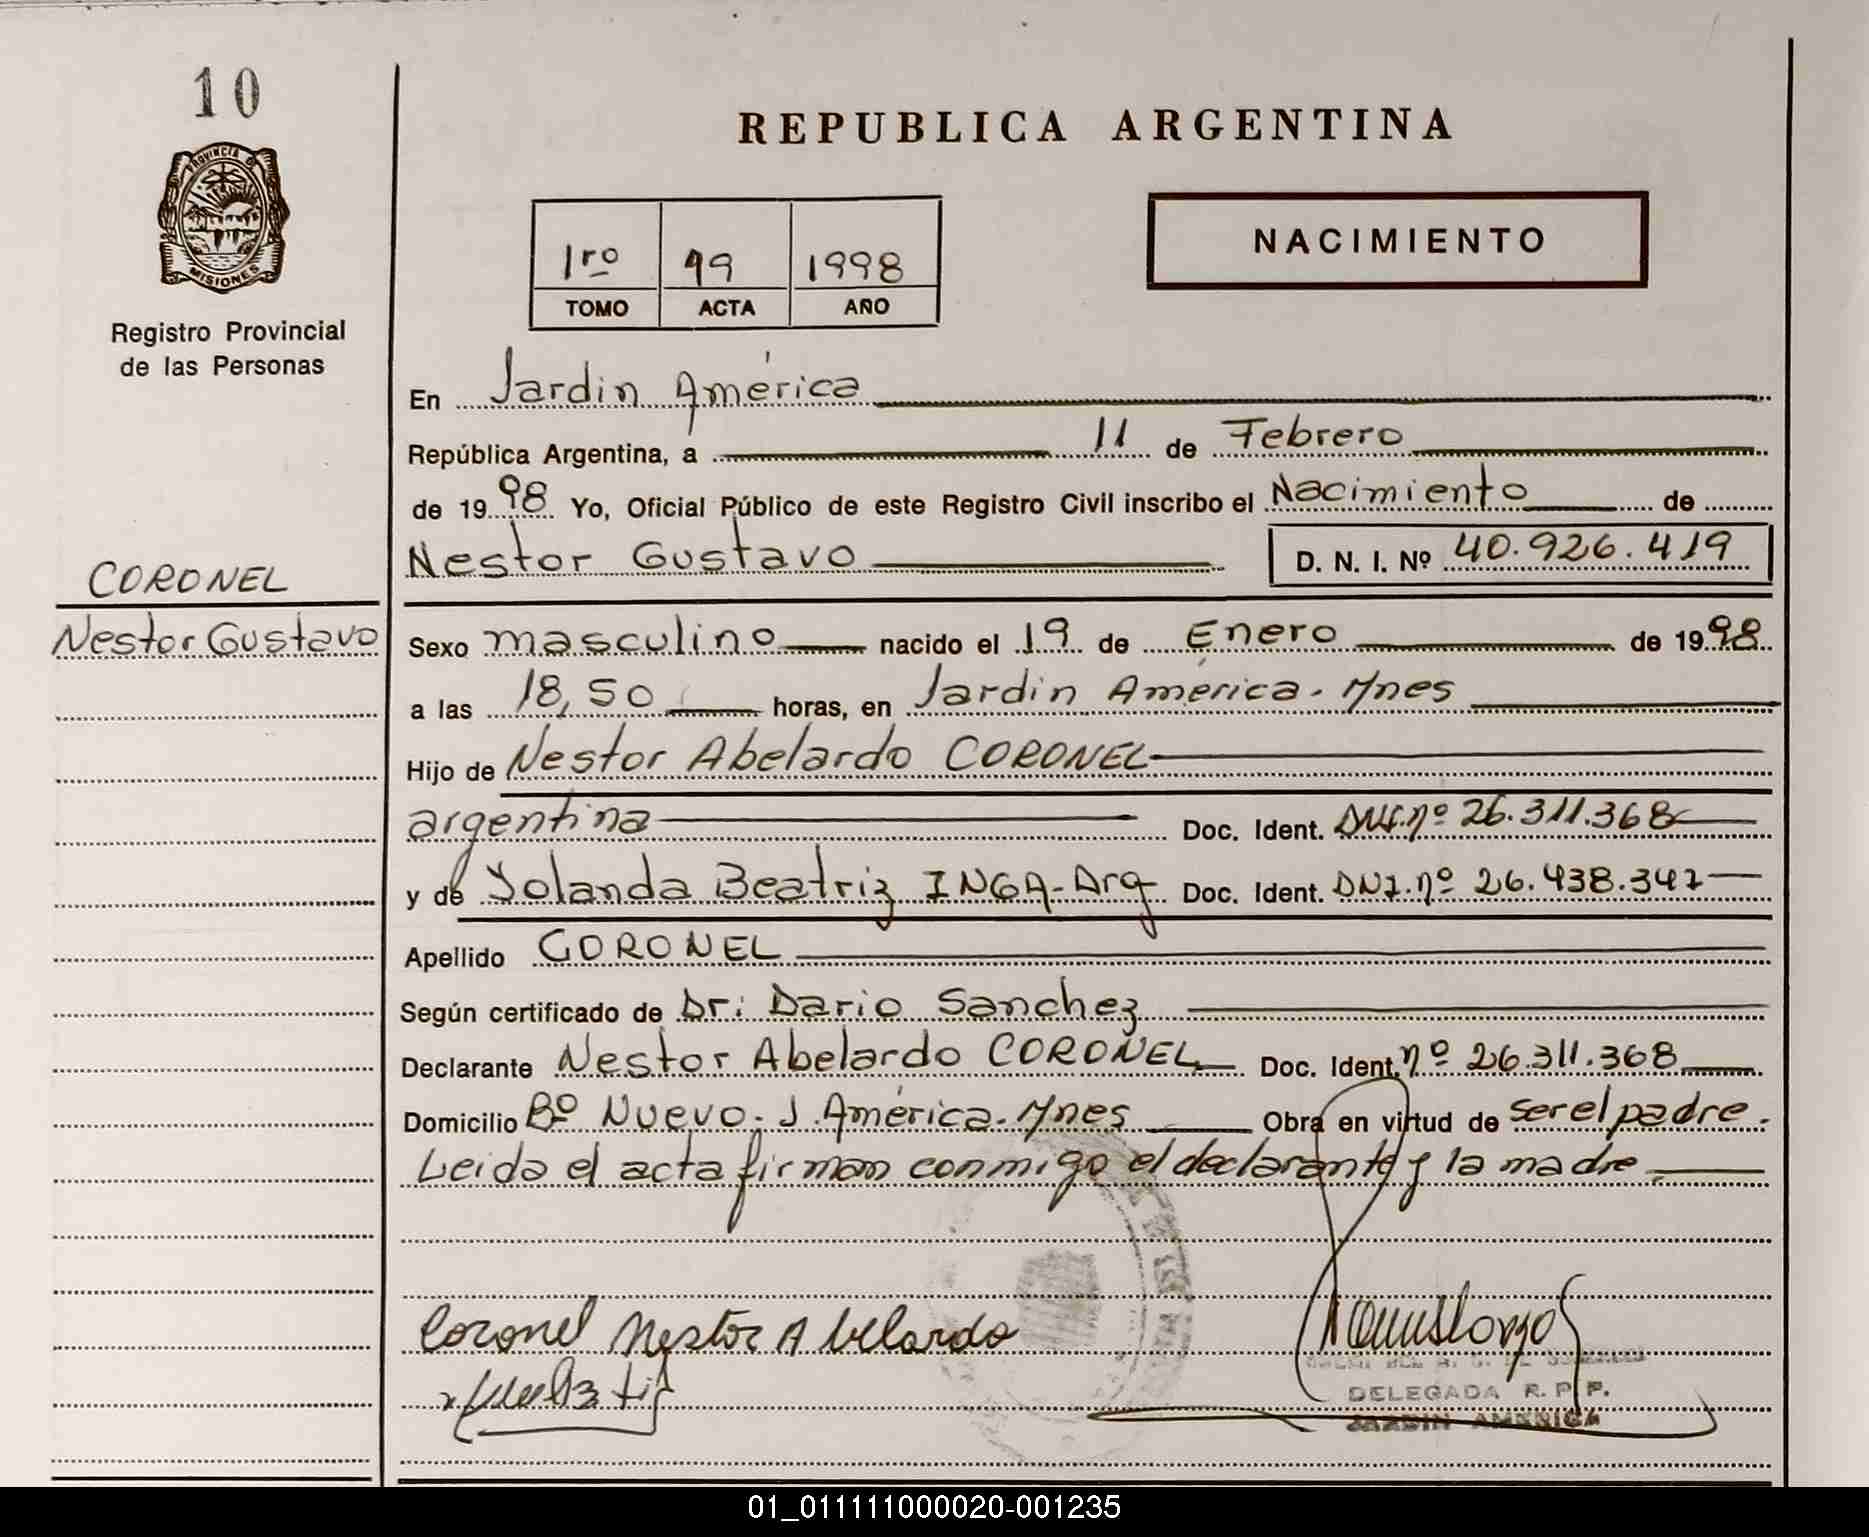 10
PROVINCIA DE
MISIONES
Registro Provincial
de las Personas
REPUBLICA ARGENTINA
1ro 99 1998
TOMO ACTA AÑO
NACIMIENTO
En Jardin América
República Argentina, a 11 de Febrero
de 1998 Yo, Oficial Público de este Registro Civil inscribo el Nacimiento de
Nestor Gustavo D. N. I. Nº 40.926.419
CORONEL
Nestor Gustavo
Sexo masculino nacido el 19 de Enero de 1998
a las 18,50 horas, en Jardin América. Mnes
Hijo de Nestor Abelardo CORONEL
argentina Doc. Ident. DNI.nº 26.311.368
y de Yolanda Beatriz INGA-Arg Doc. Ident. DNI.nº 26.438.347
Apellido CORONEL
Según certificado de Dr: Dario Sanchez
Declarante Nestor Abelardo CORONEL Doc. Ident. nº 26.311.368
Domicilio Bº Nuevo. J. América. Mnes Obra en virtud de ser el padre.
Leida el acta firman conmigo el declarante y la madre
Coronel Nestor Abelardo
DELEGADA R. P. P.
JARDIN AMERICA
01_011111000020-001235